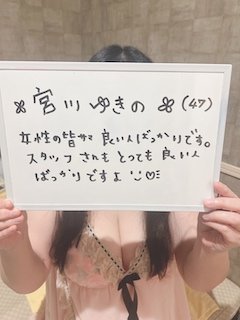 宮川 ゆきの (47)
女性の皆サマ 良い人ばっかりです。
スタッフさんも とっても 良い人
ばっかりですよ